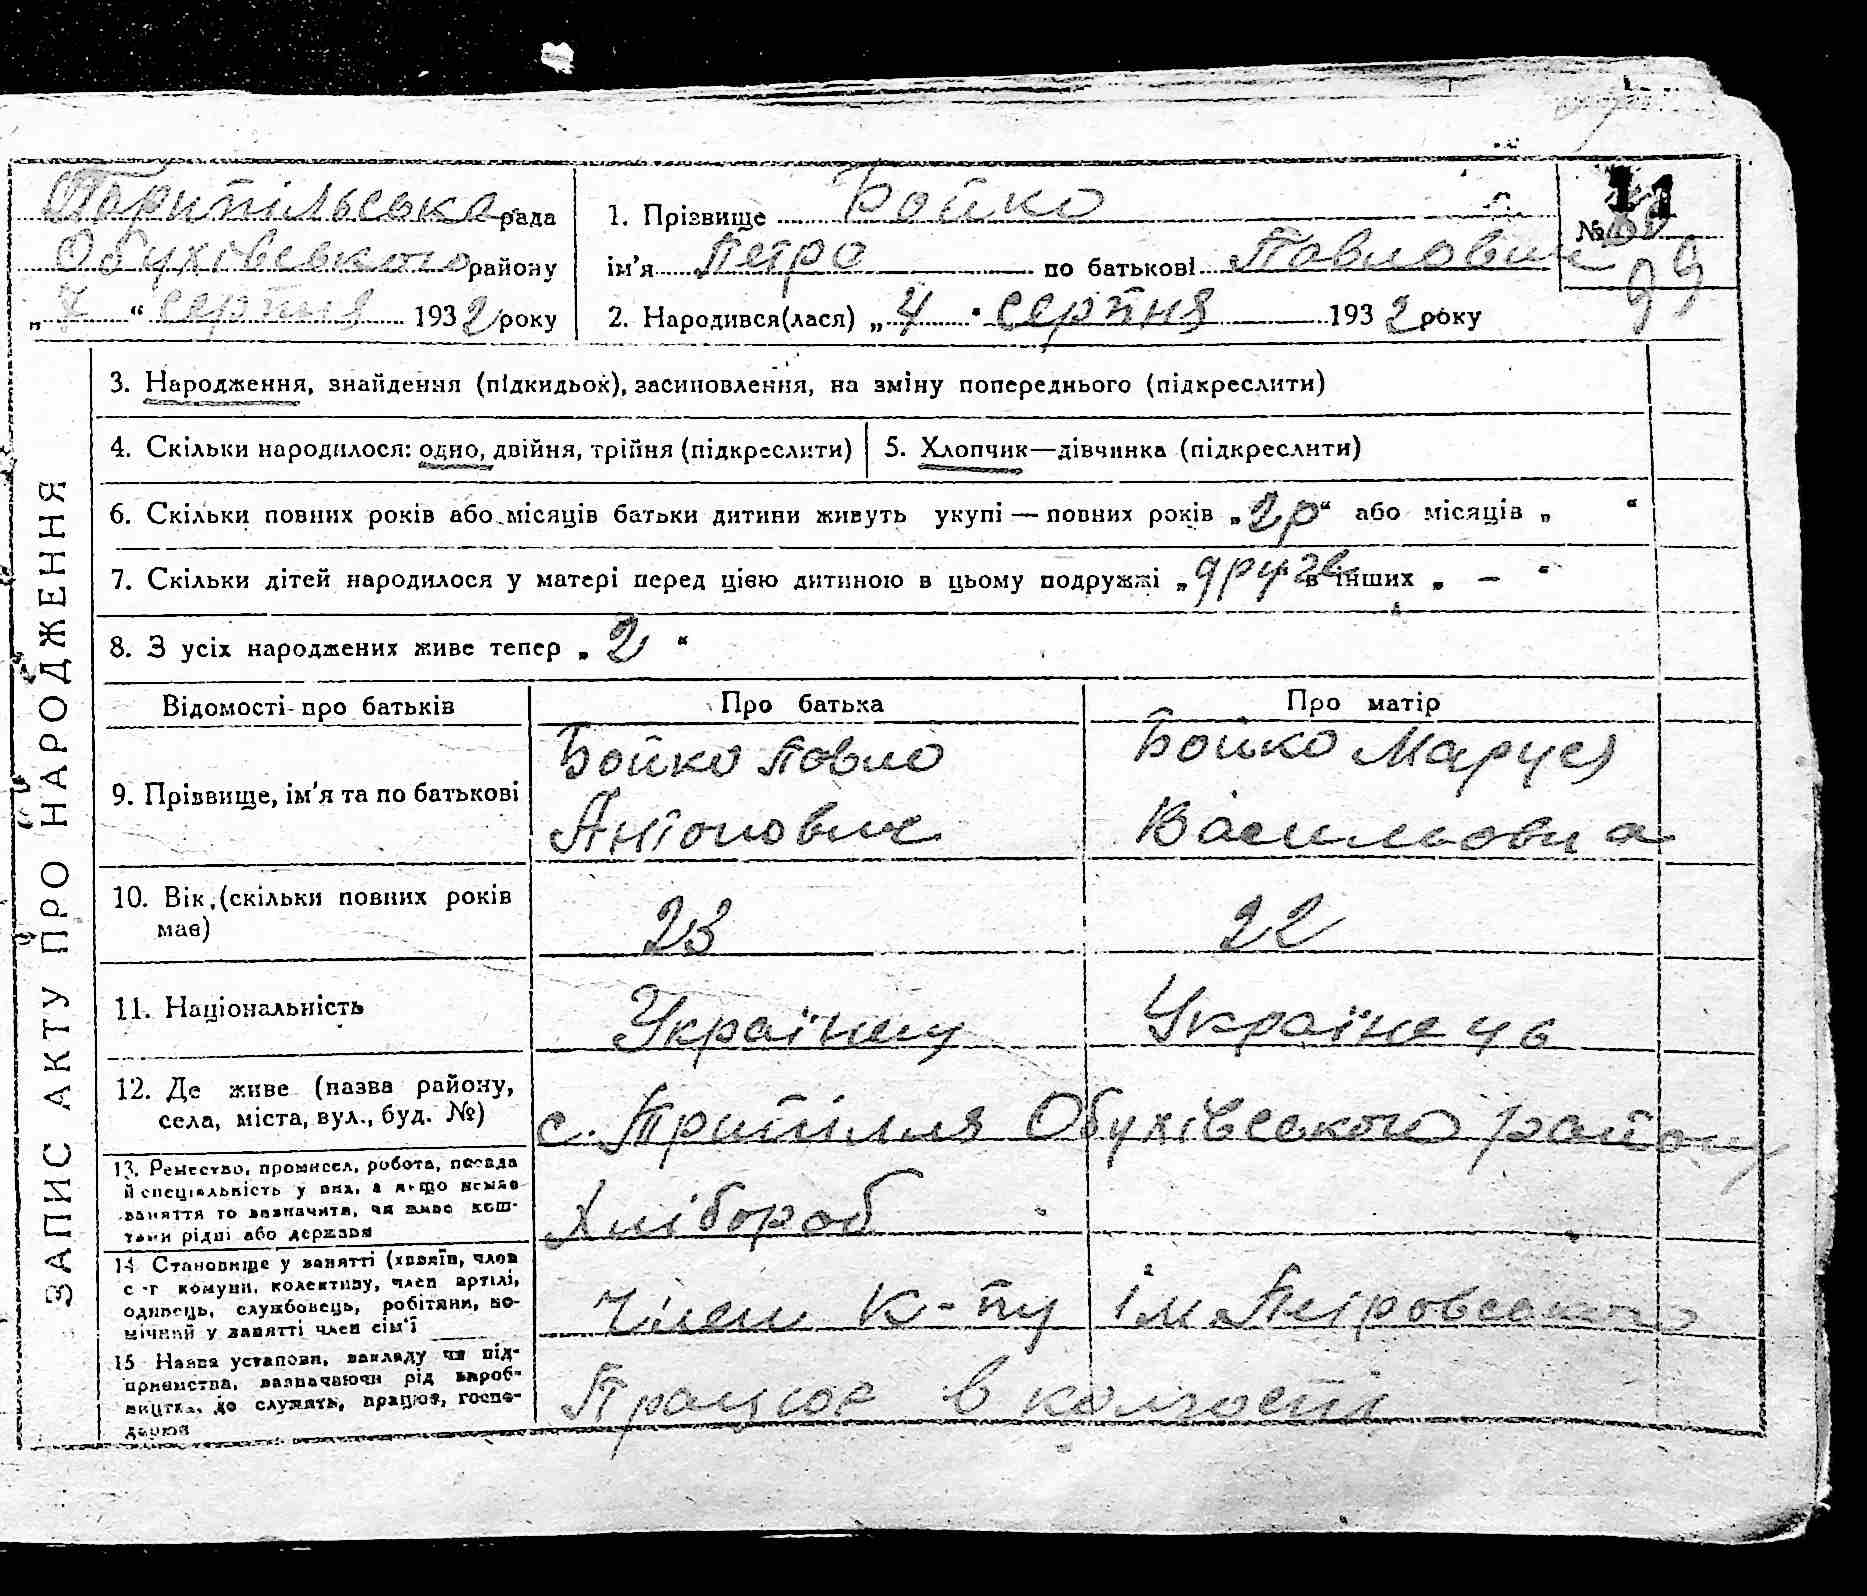 Трипільська рада
Обухівського району
„7“ серпня 1932 року
1. Прізвище Бойко
ім'я Петро по батькові Павлович
2. Народився(лася) „4“ серпня 1932 року
№
11
99
ЗАПИС АКТУ ПРО НАРОДЖЕННЯ
3. Народження, знайдення (підкидьок), засиновлення, на зміну попереднього (підкреслити)
4. Скільки народилося: одно, двійня, трійня (підкреслити)
5. Хлопчик—дівчинка (підкреслити)
6. Скільки повних років або місяців батьки дитини живуть укупі — повних років „2р“ або місяців „ “
7. Скільки дітей народилося у матері перед цією дитиною в цьому подружжі „друге в інших „ — “
8. З усіх народжених живе тепер „2“
Відомості про батьків
Про батька
Про матір
9. Прізвище, ім'я та по батькові
Бойко Павло
Антонович
Бойко Маруся
Василовна
10. Вік (скільки повних років
має)
23
22
11. Національність
Українец
Українець
12. Де живе (назва району,
села, міста, вул., буд. №)
с. Трипілля Обухівського району
13. Ремество, промисел, робота, посада
й спеціальність у них, а якщо немає
заняття то зазначити, чи живе кош-
тами рідні або держави
Хлібороб
14 Становище у занятті (хазяїн, член
с-г комуни, колективу, член артілі,
одинець, службовець, робітник, по-
мічний у занятті член сім'ї
Член К-ту ім Петровського
15 Назва установи, закладу чи під-
приємства, зазначаючи рід вироб-
ництва, де служить, працює, госпо-
дарює
Працює в колгоспі